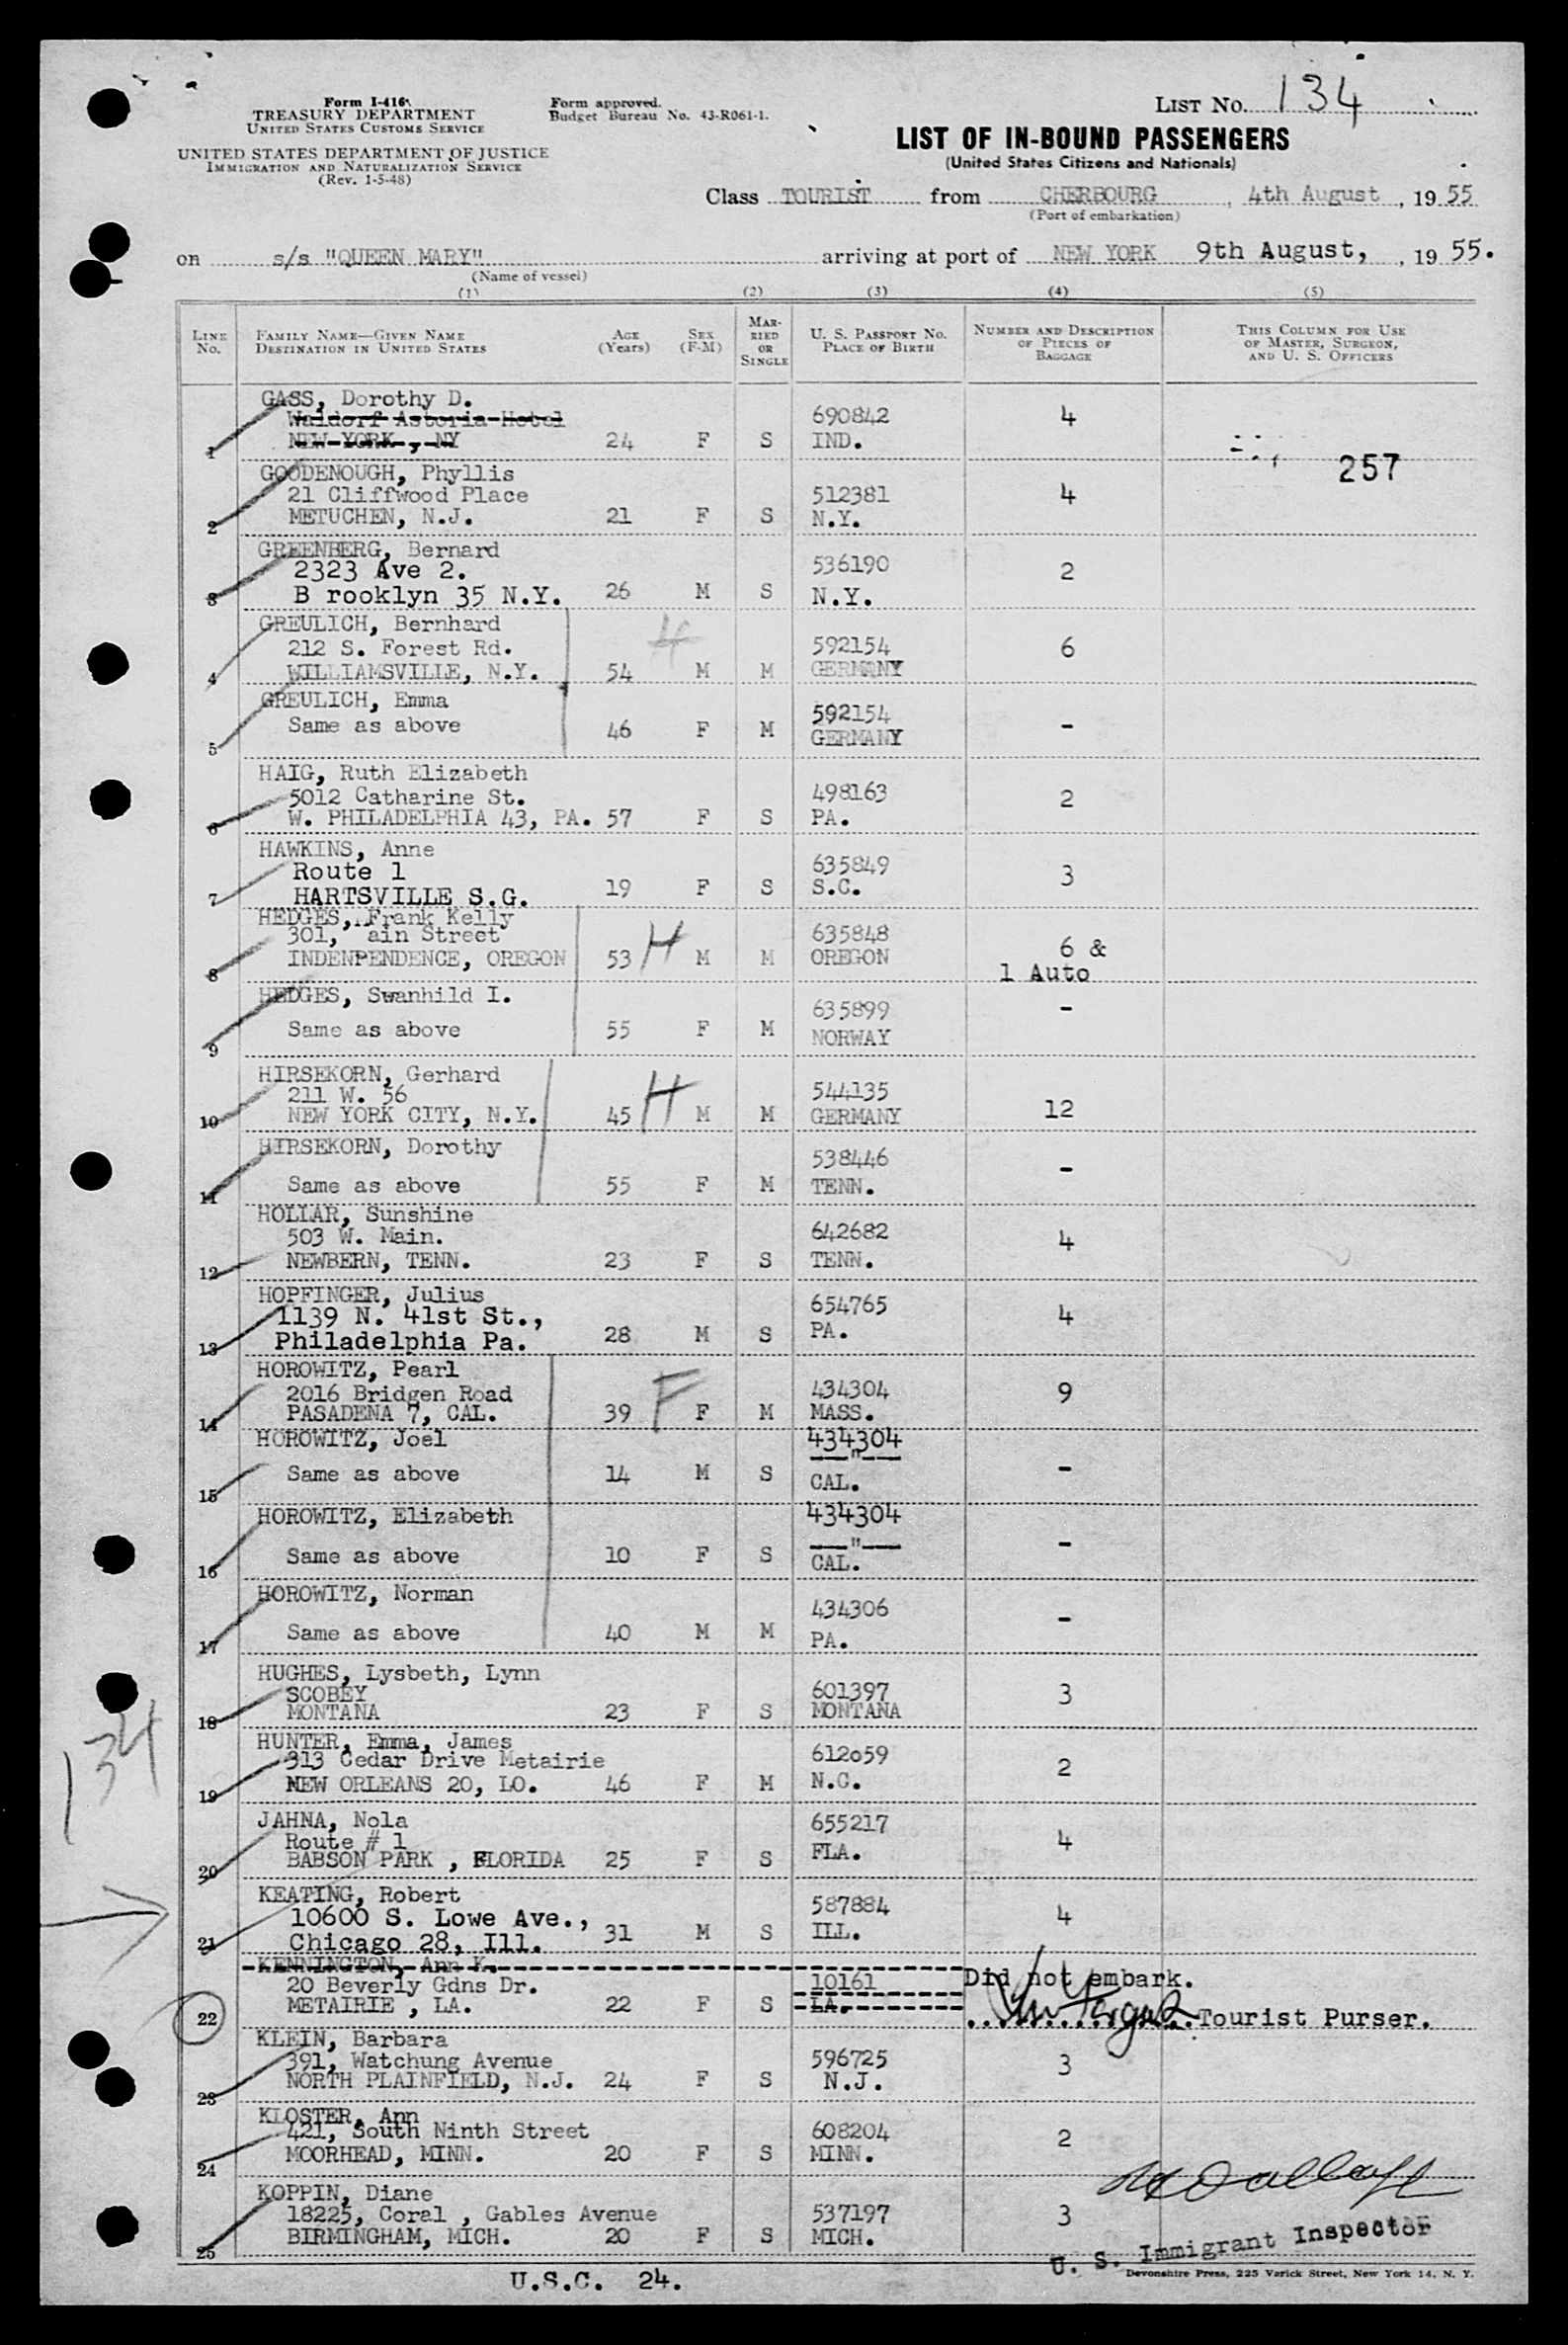 LIST No. 134
Form I-416
TREASURY DEPARTMENT
UNITED STATES CUSTOMS SERVICE
UNITED STATES DEPARTMENT OF JUSTICE
IMMIGRATION AND NATURALIZATION SERVICE
(Rev. 1-5-48)
Form approved.
Budget Bureau No. 43-R061-1.
LIST OF IN-BOUND PASSENGERS
(United States Citizens and Nationals)
Class TOURIST from CHERBOURG, 4th August, 1955
(Port of embarkation)
on s/s "QUEEN MARY" arriving at port of NEW YORK 9th August, , 1955.
(Name of vessel)
(1) (2) (3) (4) (5)
LINE No. FAMILY NAME—GIVEN NAME DESTINATION IN UNITED STATES AGE (Years) SEX (F-M) MARRIED OR SINGLE U. S. PASSPORT NO. PLACE OF BIRTH NUMBER AND DESCRIPTION OF PIECES OF BAGGAGE THIS COLUMN FOR USE OF MASTER, SURGEON, AND U. S. OFFICERS
GASS, Dorothy D.
Waldorf Astoria Hotel 690842 4
1 NEW YORK , NY 24 F S IND.
257
GOODENOUGH, Phyllis
21 Cliffwood Place 512381 4
2 METUCHEN, N.J. 21 F S N.Y.
GREENBERG, Bernard
2323 Ave 2. 536190 2
3 B rooklyn 35 N.Y. 26 M S N.Y.
GREULICH, Bernhard
212 S. Forest Rd. 592154 6
4 WILLIAMSVILLE, N.Y. 54 M M GERMANY
GREULICH, Emma 592154
5 Same as above 46 F M GERMANY -
HAIG, Ruth Elizabeth
5012 Catharine St. 498163 2
6 W. PHILADELPHIA 43, PA. 57 F S PA.
HAWKINS, Anne
Route 1 635849 3
7 HARTSVILLE S.G. 19 F S S.C.
HEDGES, Frank Kelly
301, ain Street 635848 6 &
8 INDENPENDENCE, OREGON 53 H M M OREGON 1 Auto
HEDGES, Swanhild I. 635899 -
9 Same as above 55 F M NORWAY
HIRSEKORN, Gerhard
211 W. 56 544135
10 NEW YORK CITY, N.Y. 45 H M M GERMANY 12
HIRSEKORN, Dorothy 538446 -
11 Same as above 55 F M TENN.
HOLLAR, Sunshine
503 W. Main. 642682 4
12 NEWBERN, TENN. 23 F S TENN.
HOPFINGER, Julius
1139 N. 41st St., 654765 4
13 Philadelphia Pa. 28 M S PA.
HOROWITZ, Pearl
2016 Bridgen Road 434304 9
14 PASADENA 7, CAL. 39 F F M MASS.
HOROWITZ, Joel 434304
--"--
15 Same as above 14 M S CAL. -
HOROWITZ, Elizabeth 434304
--"--
16 Same as above 10 F S CAL. -
HOROWITZ, Norman 434306 -
17 Same as above 40 M M PA.
HUGHES, Lysbeth, Lynn
SCOBEY 601397 3
18 MONTANA 23 F S MONTANA
HUNTER, Emma, James
913 Cedar Drive Metairie 612o59 2
19 NEW ORLEANS 20, LO. 46 F M N.C.
JAHNA, Nola
Route # 1 655217 4
20 BABSON PARK , FLORIDA 25 F S FLA.
KEATING, Robert
10600 S. Lowe Ave., 587884 4
21 Chicago 28, Ill. 31 M S ILL.
134
KENNINGTON, Ann K.
20 Beverly Gdns Dr. 10161 Did not embark.
22 METAIRIE , LA. 22 F S LA. Tourist Purser.
KLEIN, Barbara
391, Watchung Avenue 596725 3
23 NORTH PLAINFIELD, N.J. 24 F S N.J.
KLOSTER, Ann
421, South Ninth Street 608204 2
24 MOORHEAD, MINN. 20 F S MINN.
KOPPIN, Diane
18225, Coral , Gables Avenue 537197 3
25 BIRMINGHAM, MICH. 20 F S MICH.
U. S. Immigrant Inspector
Devonshire Press, 225 Varick Street, New York 14, N. Y.
U.S.C. 24.